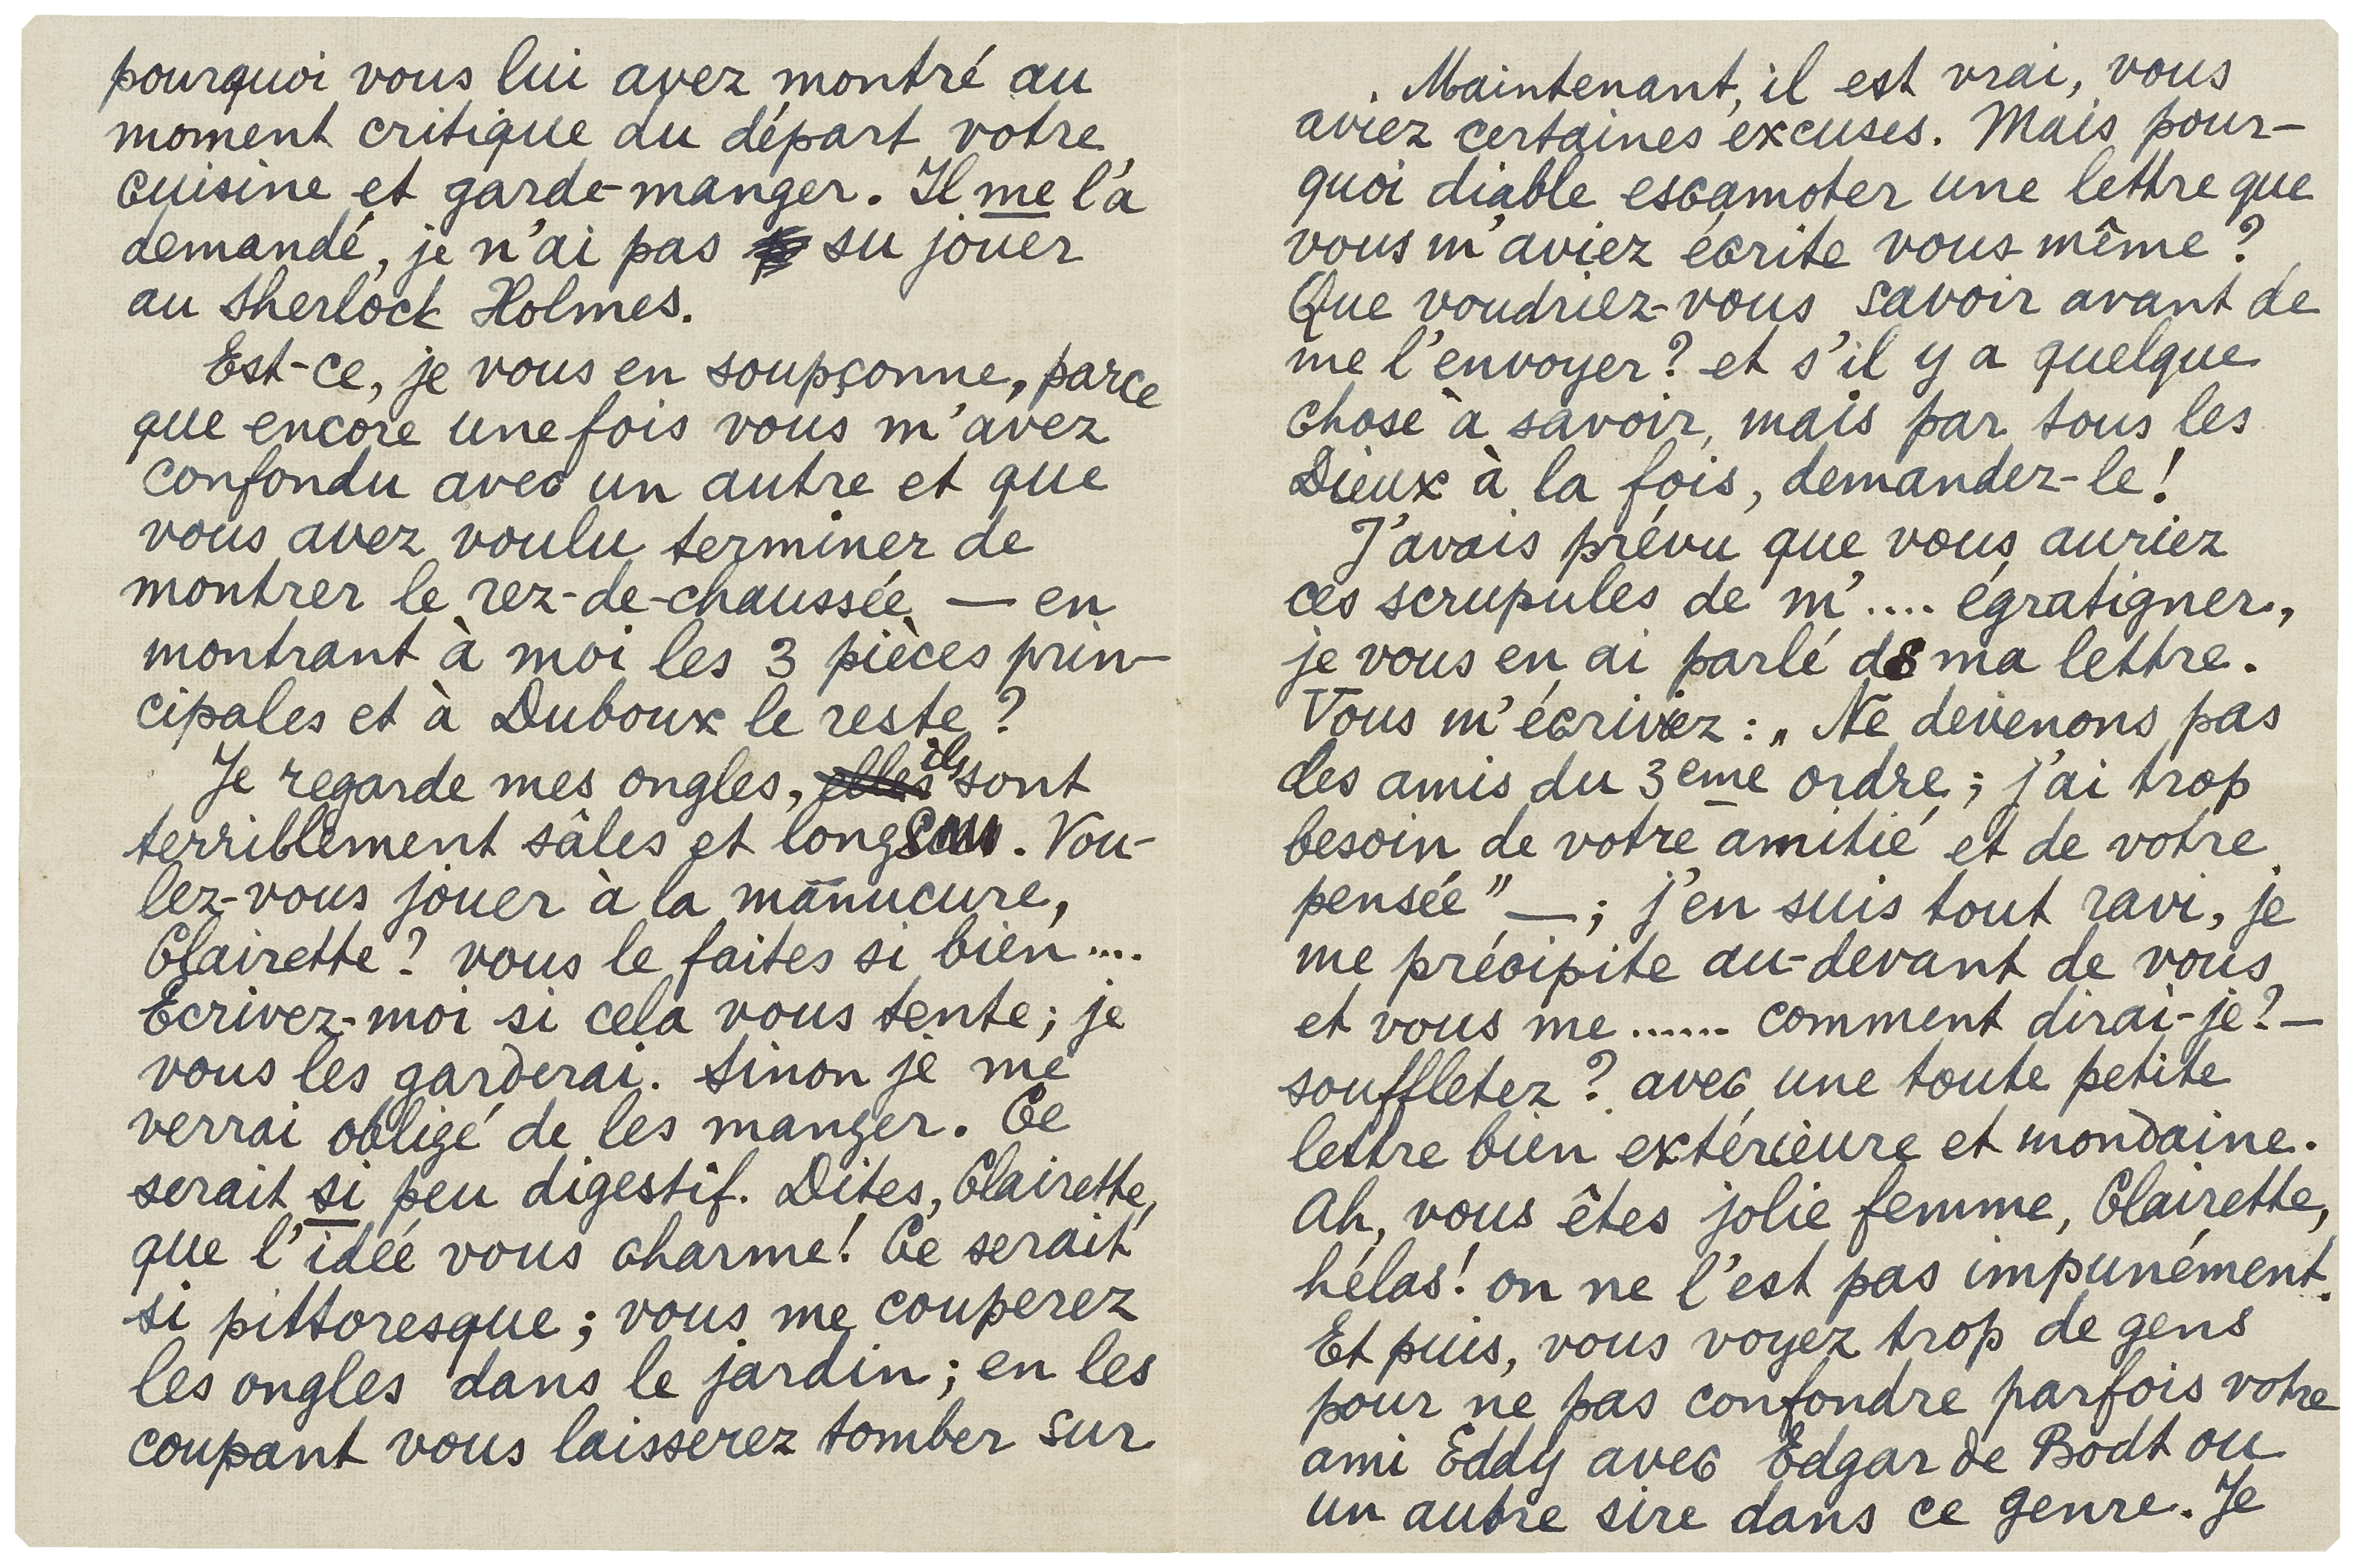 pourquoi vous lui avez montré au
moment critique du départ votre
cuisine et garde-manger. Il me l'a
demandé, je n'ai pas su jouer
au Sherlock Holmes.
Est-ce, je vous en soupçonne, parce
que encore une fois vous m'avez
confondu avec un autre et que
vous avez voulu terminer de
montrer le rez-de-chaussée — en
montrant à moi les 3 pièces prin-
cipales et à Duboux le reste ?
Je regarde mes ongles, elles ils sont
terriblement sâles et longs. Vou-
lez-vous jouer à la manucure,
Clairette ? vous le faites si bien ....
Ecrivez-moi si cela vous tente ; je
vous les garderai. Sinon je me
verrai obligé de les manger. Ce
serait si peu digestif. Dites, Clairette,
que l'idée vous charme ! Ce serait
si pittoresque ; vous me couperez
les ongles dans le jardin ; en les
coupant vous laisserez tomber sur
Maintenant, il est vrai, vous
aviez certaines excuses. Mais pour-
quoi diable escamoter une lettre que
vous m'aviez écrite vous même ?
Que voudriez-vous savoir avant de
me l'envoyer ? et s'il y a quelque
chose à savoir, mais par tous les
Dieux à la fois, demandez-le !
J'avais prévu que vous auriez
ces scrupules de m'.... égratigner,
je vous en ai parlé ds ma lettre.
Vous m'écrivez : „ Ne devenons pas
des amis du 3eme ordre ; j'ai trop
besoin de votre amitié et de votre
pensée" — ; j'en suis tout ravi, je
me précipite au-devant de vous
et vous me ...... comment dirai-je ? —
souffletez ? avec une toute petite
lettre bien extérieure et mondaine.
Ah, vous êtes jolie femme, Clairette,
hélas ! on ne l'est pas impunément.
Et puis, vous voyez trop de gens
pour ne pas confondre parfois votre
ami Eddy avec Edgar de Bodt ou
un autre sire dans ce genre. Je